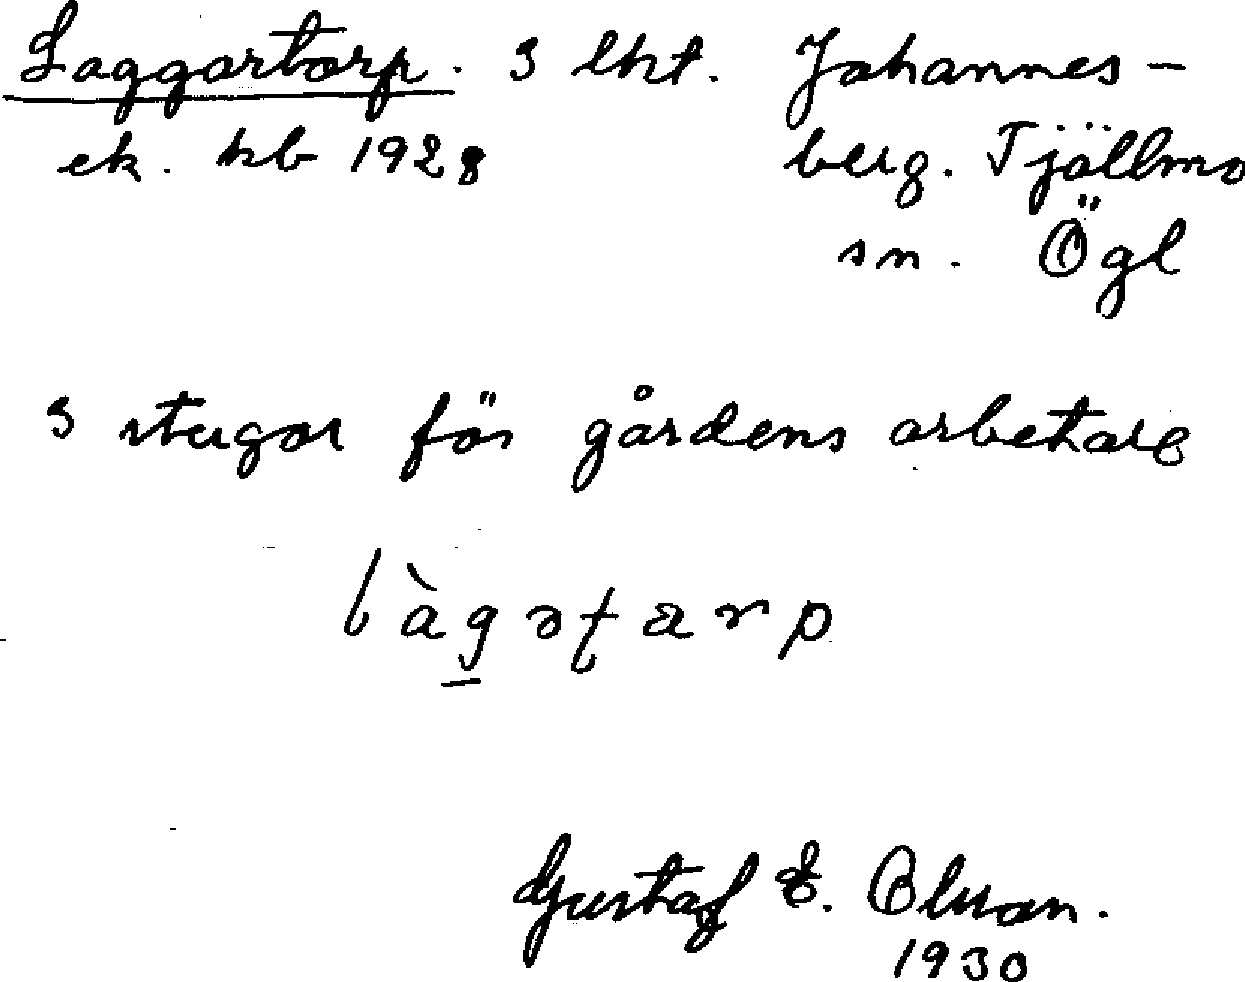 Laggartorp. 3 lht. Johannes-
ek. kb 1928 berg. Tjällmo
sn. Ögl
3 stugor för gårdens arbetare
Gustaf E. Olsson.
1930